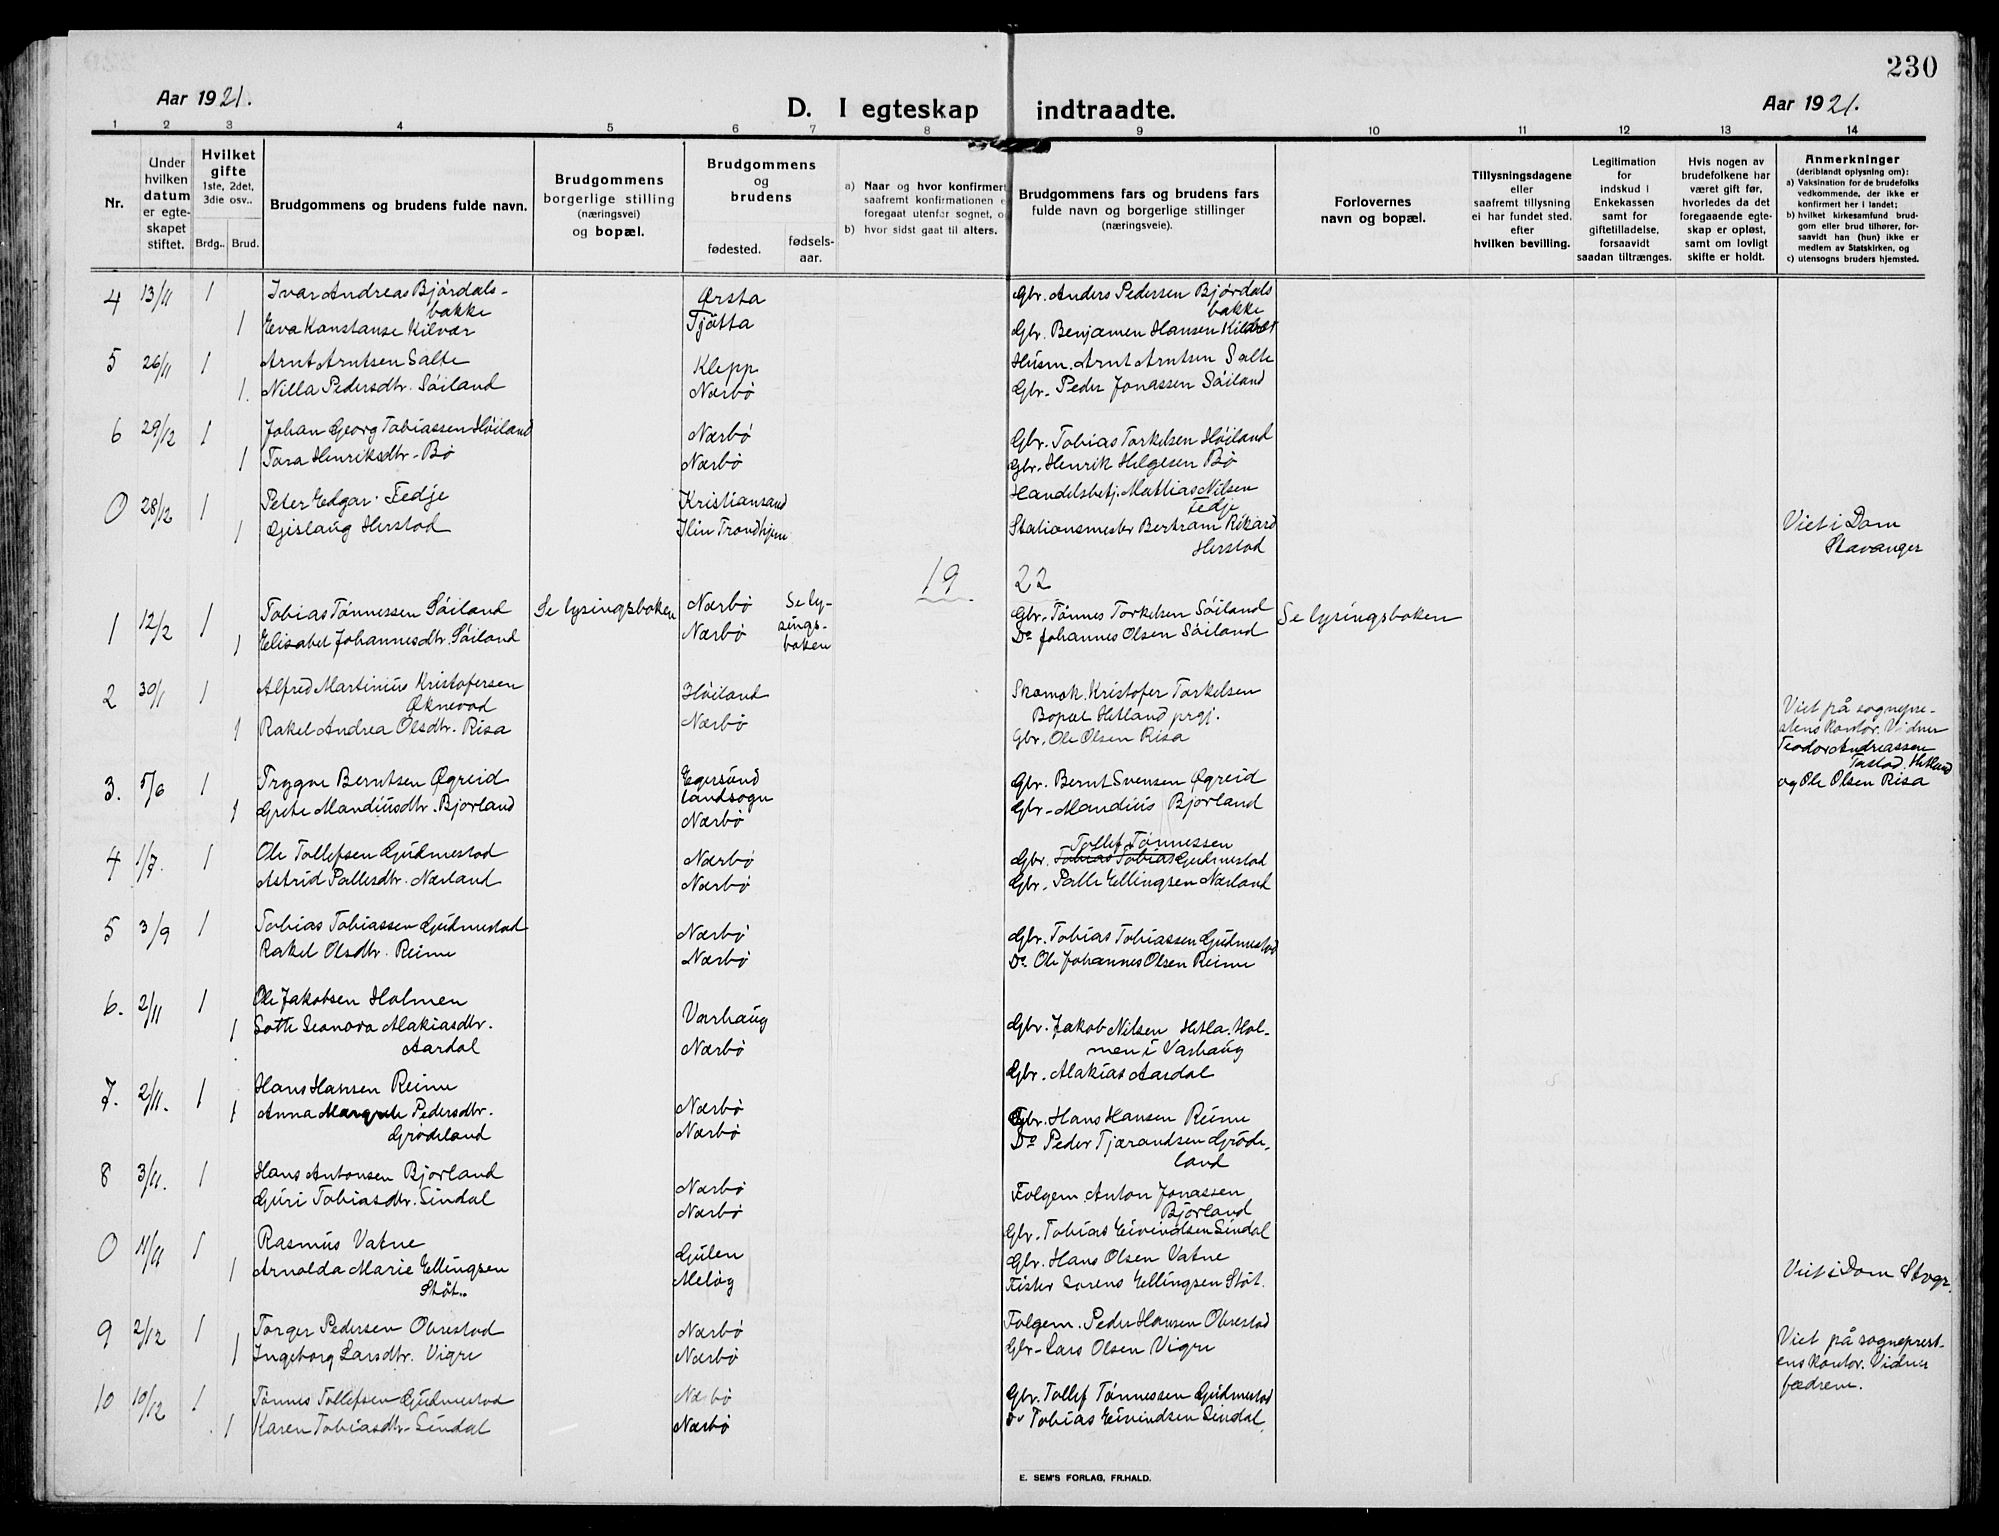 230
Aar 1921.
D. I egteskap indtraadte.
Aar 1921.
1 2 3 4 5 6 7 8 9 10 11 12 13 14
Nr.
Under hvilken datum er egteskapet stiftet.
Hvilket gifte
1ste, 2det, 3die osv..
Brdg.. Brud.
Brudgommens og brudens fulde navn.
Brudgommens borgerlige stilling (næringsvei) og bopæl.
Brudgommens og brudens
fødested.
fødsels-aar.
a) Naar og hvor konfirmert
saafremt konfirmationen e
foregaat utenfor sognet, o
b) hvor sidst gaat til alters.
Brudgommens fars og brudens fars
fulde navn og borgerlige stillinger
(næringsveie).
Forlovernes
navn og bopæl.
Tillysningsdagene
eller
saafremt tillysning
ei har fundet sted.
efter
hvilken bevilling.
Legitimation
for
indskud i
Enkekassen
samt for
giftetilladelse,
forsaavidt
saadan tiltrænges.
Hvis nogen av
brudefolkene har
været gift før,
hvorledes da det
foregaaende egte-
skap er opløst,
samt om lovlig
skifte er holdt.
Anmerkninger
(deriblandt oplysning om):
a) Vaksination for de brudefolks
vedkommende, der ikke er
konfirmert her i landet;
b) hvilket kirkesamfund brud-
gom eller brud tilhører, for-
saavidt han (hun) ikke er
medlem av Statskirken, og
c) utensogns bruders hjemsted.
4 13/11 1 Ivar Andreas Bjørdals- Ørsta Gbr. Anders Pedersen Bjørdals
bakke bakke
1 Eva Konstanse Kilvær Tjøtta Gbr. Benjamen Hansen Kilvær
5 26/11 1 Arnt Arntsen Salte Klepp Husm. Arnt Arntsen Salte
1. Nilla Pedersdtr. Søiland Nærbø Gbr. Peder Jonassen Søiland
6 29/12 1 Johan Georg Tobiassen Høiland Nærbø Gbr. Tobias Torkelsen Høiland
1 Tora Henriksdtr. Bø Nærbø Gbr. Henrik Helgesen Bø
0 28/12 1 Peter Edgar Fedje Kristiansand Handelsbetj. Mattias Nilsen
Fedje
1 Gislaug Herstad Ilen Trondhjem Stationsmester Bertram Rikard
Herstad
Viet i Dom
Stavanger
19 22
1 12/2 1 Tobias Tønnessen Søiland Se lysingsboken Nærbø Se ly- Gbr. Tønnes Torkelsen Søiland Se lysingsboken
1 Elisabet Johannesdtr. Søiland Nærbø sings- Do Johannes Olsen Søiland
boken
2 30/1 1 Alfred Martinius Kristofersen Høiland Skomak. Kristofer Torkelsen
Øknevad Bopæl Hetland prgj.
1 Rakel Andrea Olsdtr. Risa Nærbø Gbr. Ole Olsen Risa
Viet på sognepre-
stens kontor. Vidner
Teodor Andreassen
Tastad, Hetland
og Ole Olsen Risa
3. 5/6 1 Trygve Berntsen Øgreid Egersund Gbr. Bernt Svensen Øgreid
landsogn
1 Grete Mandiusdtr. Bjorland Nærbø Gbr. Mandius Bjorland
Tollef Tønnessen
4 1/7. 1 Ole Tollefsen Gudmestad Nærbø Gbr. Tobias Tobias Gudmestad
Astrid Pallesdtr. Nærland Nærbø Gbr. Palle Ellingsen Nærland
5 3/9 1 Tobias Tobiassen Gudmestad Nærbø Gbr. Tobias Tobiassen Gudmestad
Rakel Olsdtr. Reime Nærbø Do Ole Johannes Olsen Reime
6. 2/11 1 Ole Jakobsen Holmen Varhaug Gbr. Jakob Nilsen Hetla. Hol-
men i Varhaug
1 Lotte Leonora Alakiasdtr.
Aardal Nærbø Gbr. Alakias Aardal
7. 2/11. 1 Hans Hansen Reime Nærbø Gbr. Hans Hansen Reime
1 Anna Margrete Pedersdtr.
Grødeland Nærbø Do Peder Tjærandsen Grøde-
land
8 3/11. 1 Hans Antonsen Bjorland Nærbø Folgem. Anton Jonassen
Bjorland
Guri Tobiasdtr. Sindal Nærbø Gbr. Tobias Eivindsen Sindal
0 11/11 1 Rasmus Vatne Gulen Gbr. Hans Olsen Vatne
1 Arnolda Marie Ellingsen Meløy Fisker Sorens Ellingsen Støt.
Støt..
Viet i Dom Stvgr.
9 2/12 1 Torger Pedersen Obrestad Nærbø Folgem. Peder Hansen Obrestad
1 Ingeborg Larsdtr. Vigre Nærbø Gbr. Lars Olsen Vigre
Viet på sogneprest-
ens kontor. Vidner
fædrene.
10 10/12 1 Tønnes Tollefsen Gudmestad Nærbø Gbr. Tollef Tønnessen Gudmestad
1 Karen Tobiasdtr. Sindal Nærbø Do Tobias Eivindsen Sindal.
E. SEM'S FORLAG, FR.HALD.